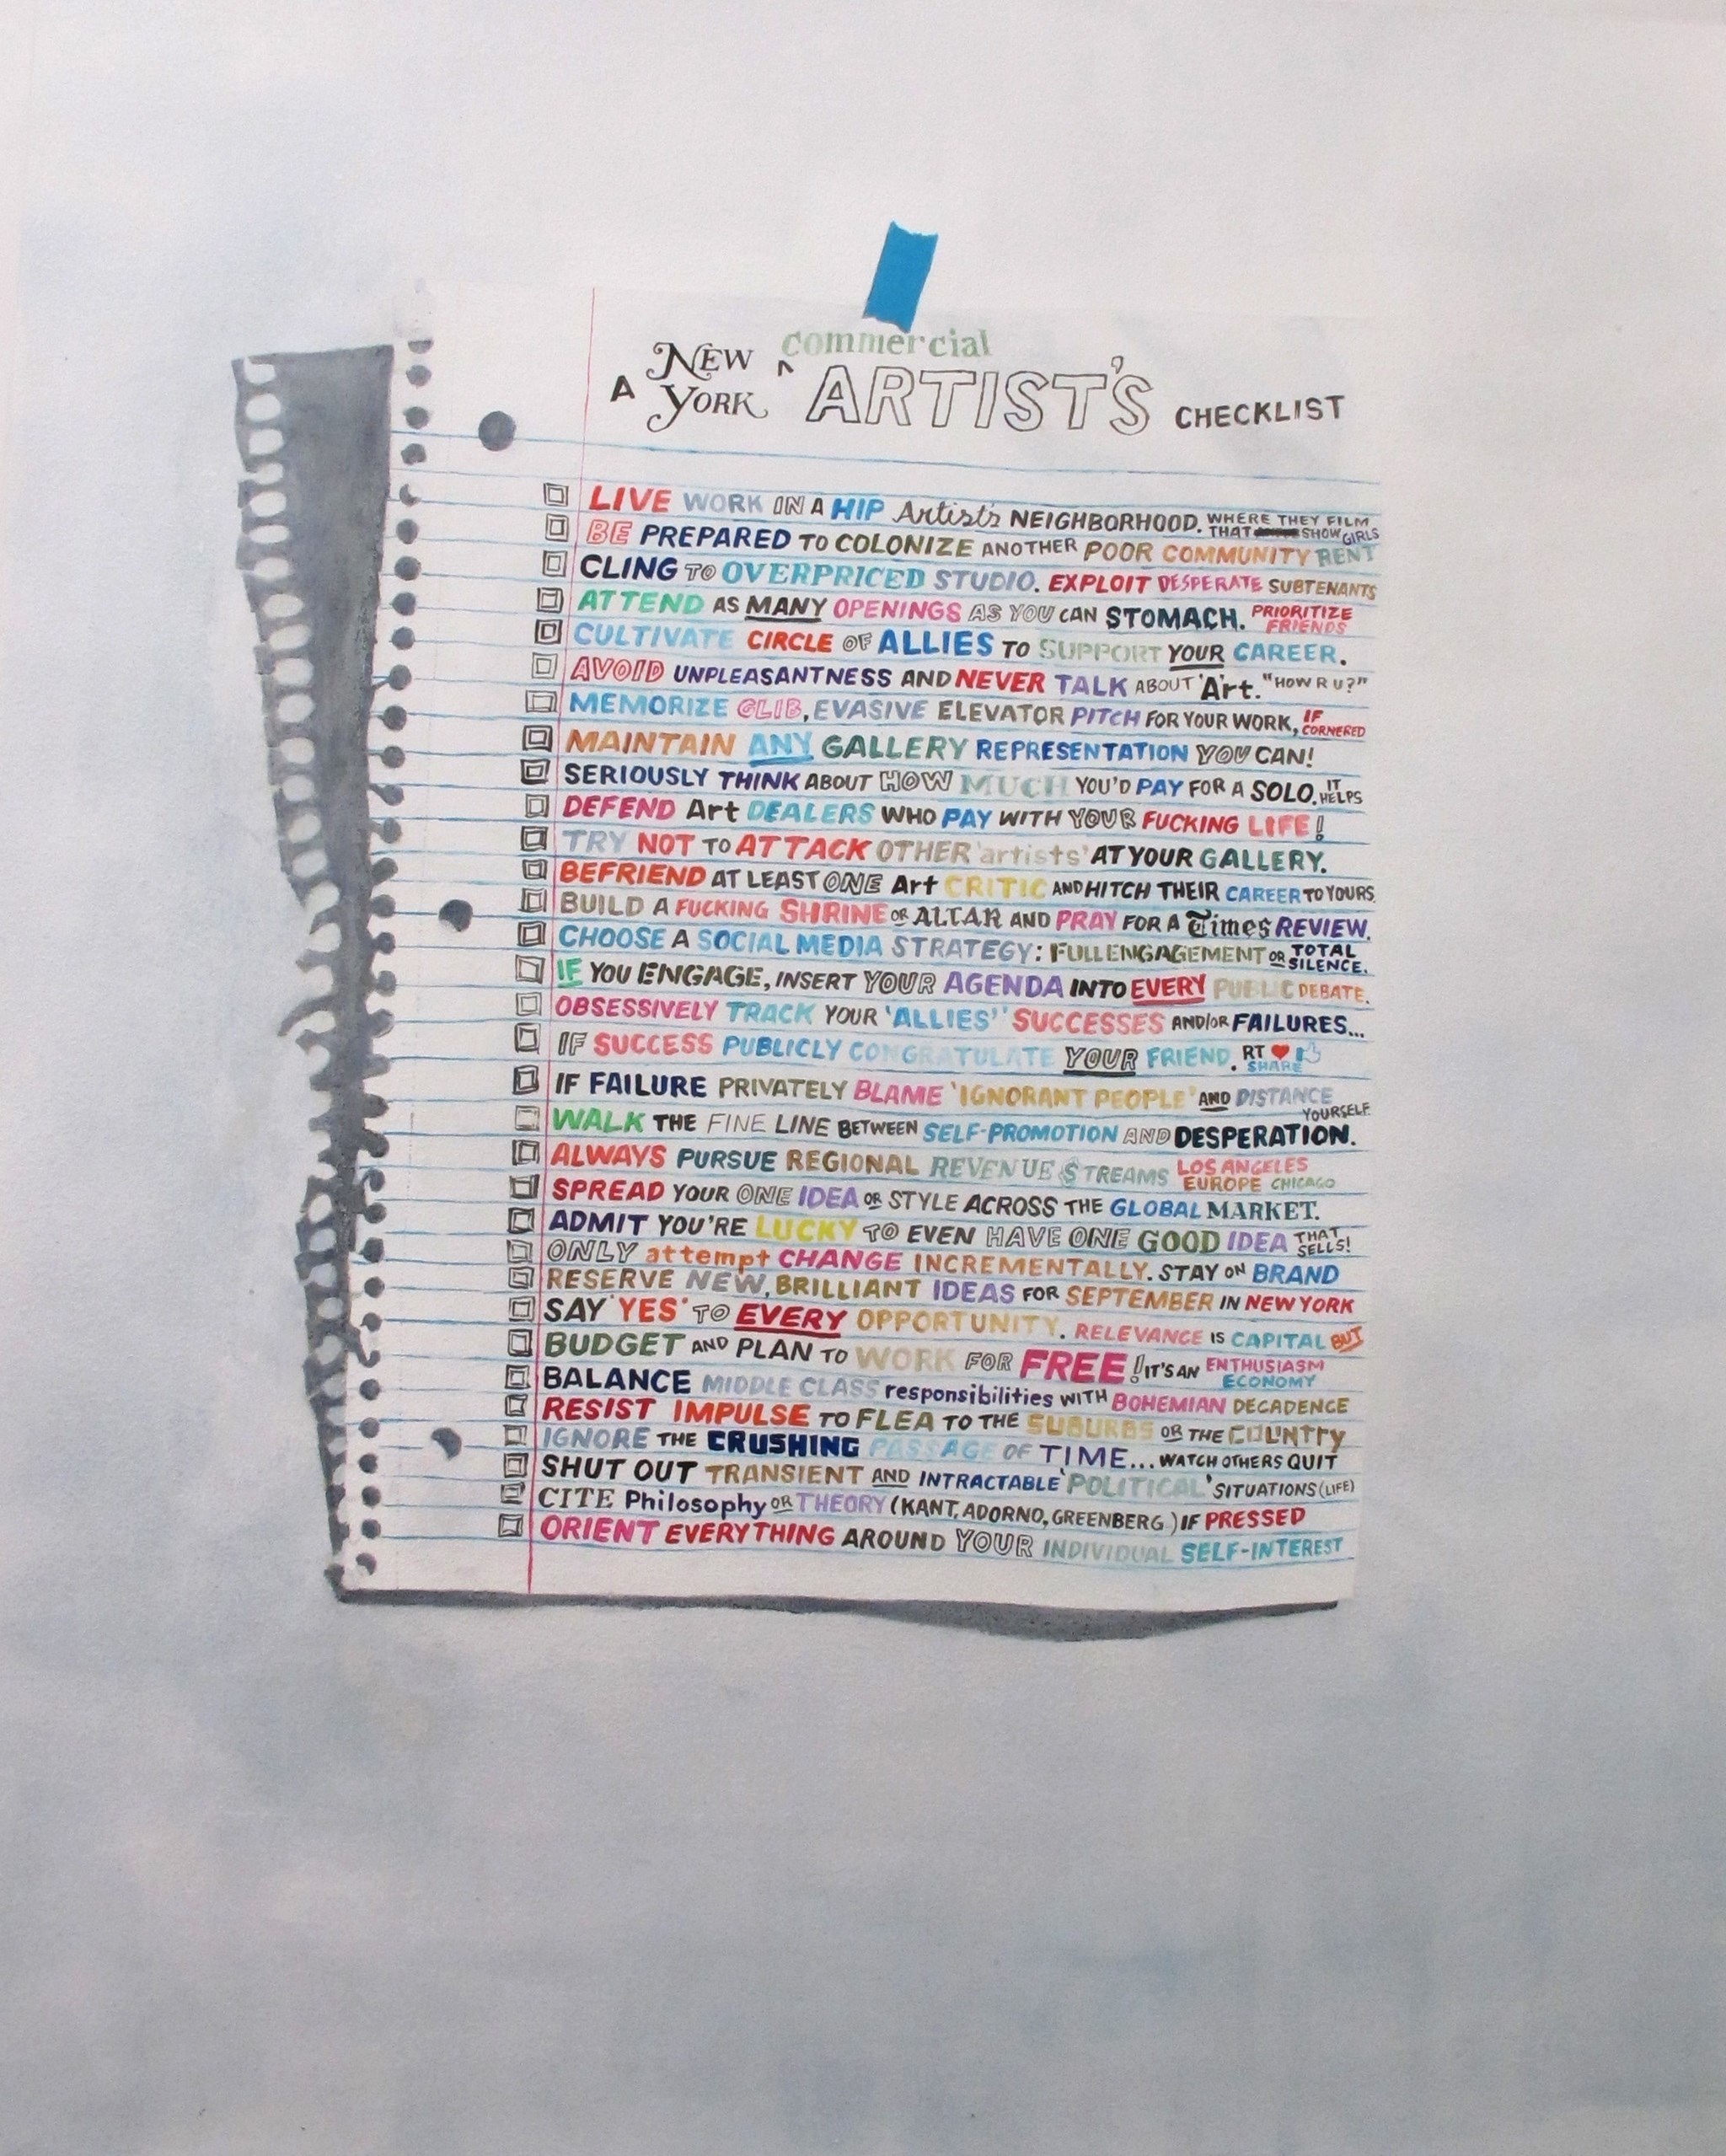 A NEW YORK ^ commercial ARTIST'S CHECKLIST
LIVE WORK IN A HIP Artist's NEIGHBORHOOD. WHERE THEY FILM THAT SHOW GIRLS
BE PREPARED TO COLONIZE ANOTHER POOR COMMUNITY RENT
CLING TO OVERPRICED STUDIO. EXPLOIT DESPERATE SUBTENANTS
ATTEND AS MANY OPENINGS AS YOU CAN STOMACH. PRIORITIZE FRIENDS
CULTIVATE CIRCLE OF ALLIES TO SUPPORT YOUR CAREER.
AVOID UNPLEASANTNESS AND NEVER TALK ABOUT 'Art.' "HOW R U?"
MEMORIZE GLIB, EVASIVE ELEVATOR PITCH FOR YOUR WORK, IF CORNERED
MAINTAIN ANY GALLERY REPRESENTATION YOU CAN!
SERIOUSLY THINK ABOUT HOW MUCH YOU'D PAY FOR A SOLO. IT HELPS
DEFEND Art DEALERS WHO PAY WITH YOUR FUCKING LIFE!
TRY NOT TO ATTACK OTHER 'artists' AT YOUR GALLERY.
BEFRIEND AT LEAST ONE Art CRITIC AND HITCH THEIR CAREER TO YOURS.
BUILD A FUCKING SHRINE OR ALTAR AND PRAY FOR A Times REVIEW.
CHOOSE A SOCIAL MEDIA STRATEGY: FULL ENGAGEMENT OR TOTAL SILENCE.
IF YOU ENGAGE, INSERT YOUR AGENDA INTO EVERY PUBLIC DEBATE.
OBSESSIVELY TRACK YOUR 'ALLIES'' SUCCESSES AND/OR FAILURES...
IF SUCCESS PUBLICLY CONGRATULATE YOUR FRIEND. RT ♥ 👍 SHARE
IF FAILURE PRIVATELY BLAME 'IGNORANT PEOPLE' AND DISTANCE YOURSELF
WALK THE FINE LINE BETWEEN SELF-PROMOTION AND DESPERATION.
ALWAYS PURSUE REGIONAL REVENUE $TREAMS LOS ANGELES EUROPE CHICAGO
SPREAD YOUR ONE IDEA OR STYLE ACROSS THE GLOBAL MARKET.
ADMIT YOU'RE LUCKY TO EVEN HAVE ONE GOOD IDEA THAT SELLS!
ONLY attempt CHANGE INCREMENTALLY. STAY ON BRAND
RESERVE NEW, BRILLIANT IDEAS FOR SEPTEMBER IN NEW YORK
SAY 'YES' TO EVERY OPPORTUNITY. RELEVANCE IS CAPITAL BUT
BUDGET AND PLAN TO WORK FOR FREE! IT'S AN ENTHUSIASM ECONOMY
BALANCE MIDDLE CLASS responsibilities WITH BOHEMIAN DECADENCE
RESIST IMPULSE TO FLEA TO THE SUBURBS OR THE COUNTRY
IGNORE THE CRUSHING PASSAGE OF TIME... WATCH OTHERS QUIT
SHUT OUT TRANSIENT AND INTRACTABLE 'POLITICAL' SITUATIONS (LIFE)
CITE Philosophy OR THEORY (KANT, ADORNO, GREENBERG) IF PRESSED
ORIENT EVERYTHING AROUND YOUR INDIVIDUAL SELF-INTEREST